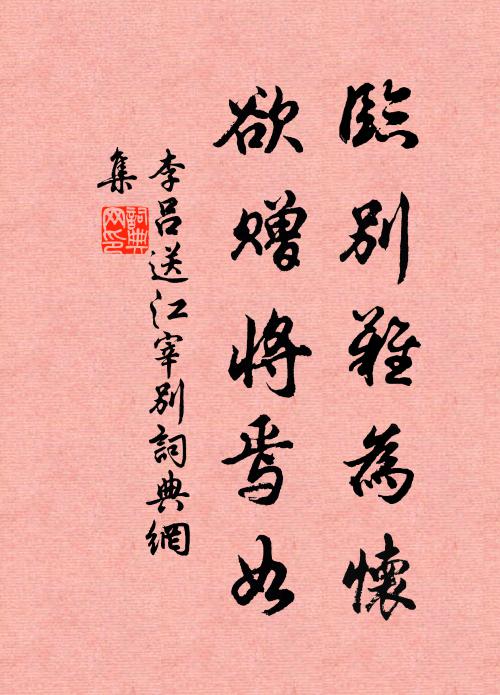 臨別難為懷
欲贈將焉如
李呂送江宰別詞典網
集
詞典网印